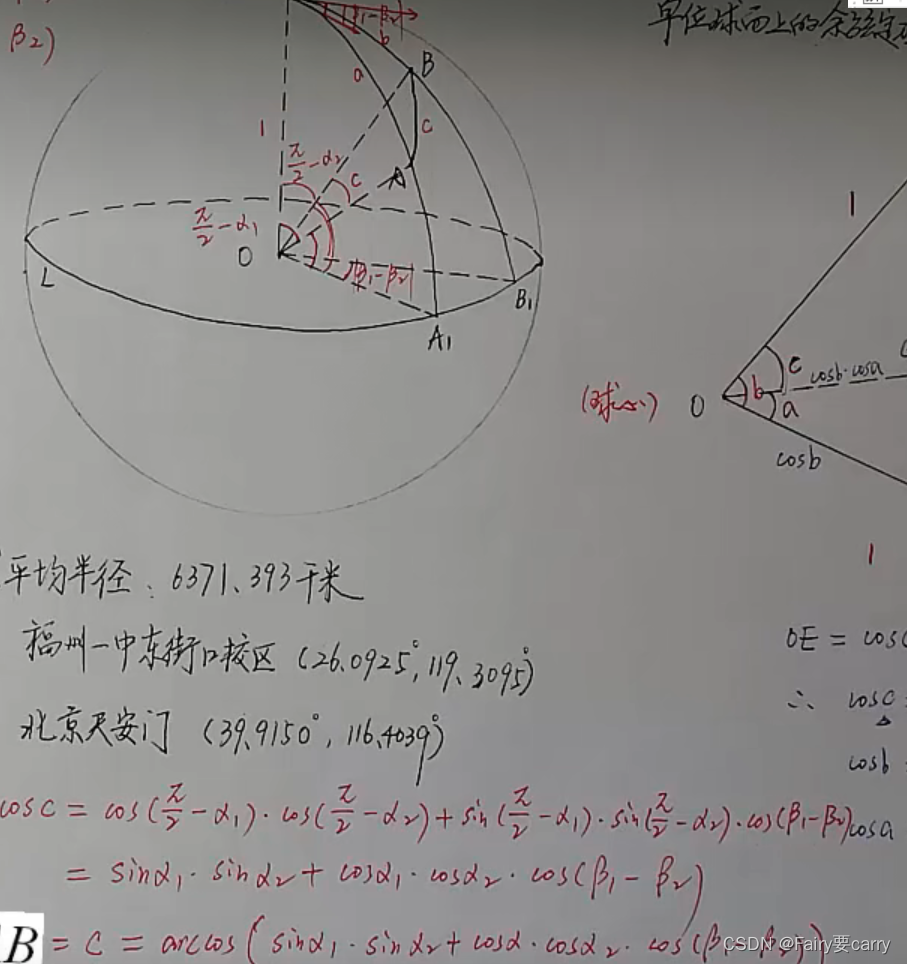 β₂)
单位球面上的余弦定
|β₁-β₂|
b
a
B
C
A
1
π/2-α₂
c
π/2-α₁
O
|β₁-β₂|
L
B₁
A₁
1
(球心)
O
b
c
cosb·cosa
a
cosb
1
平均半径: 6371.393千米
福州一中东街口校区 (26.0925°, 119.3095°)
OE = cos
北京天安门 (39.9150°, 116.4039°)
∴ cosc
cosb
cosc = cos(π/2-α₁)·cos(π/2-α₂)+sin(π/2-α₁)·sin(π/2-α₂)·cos(β₁-β₂)
cosa
= sinα₁·sinα₂+cosα₁·cosα₂·cos(β₁-β₂)
B = C = arccos(sinα₁·sinα₂+cosα·cosα₂·cos(β₁-β₂))
CSDN @Fairy要carry